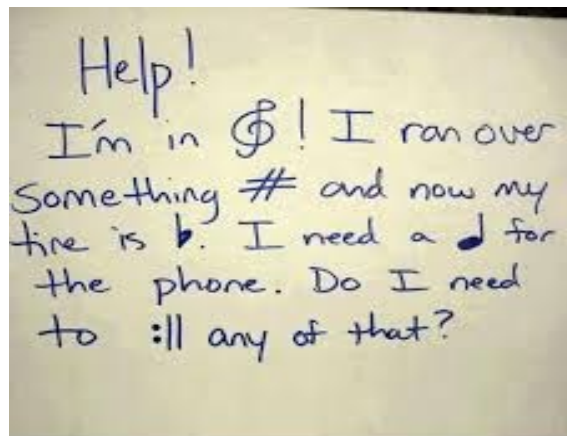 Help!
I'm in 𝄞! I ran over
something # and now my
tire is ♭. I need a ♩ for
the phone. Do I need
to 𝄇 any of that?